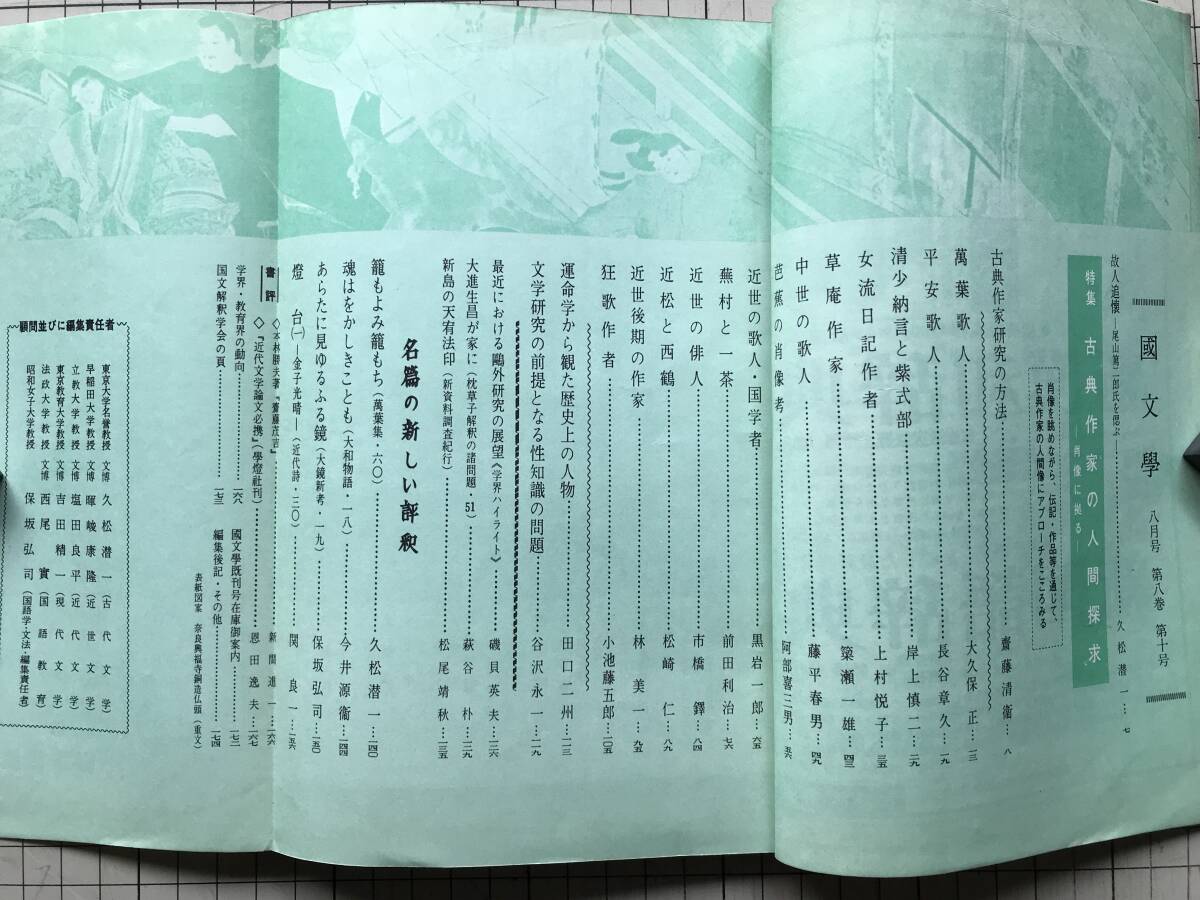 國文學 八月号 第八巻 第十号
故人追懐―尾山篤二郎氏を偲ぶ―……久松潜一…七
特集 古典作家の人間探求
―肖像に拠る―
肖像を眺めながら、伝記・作品等を通じて、
古典作家の人間像にアプローチをこころみる
古典作家研究の方法……齋藤清衞…八
萬葉歌人……大久保正…一三
平安歌人……長谷章久…一九
清少納言と紫式部……岸上慎二…二九
女流日記作者……上村悦子…三五
草庵作家……簗瀬一雄…四三
中世の歌人……藤平春男…四九
芭蕉の肖像考……阿部喜三男…五六
近世の歌人・国学者……黒岩一郎…六五
蕪村と一茶……前田利治…七六
近世の俳人……市橋鐸…八四
近松と西鶴……松崎仁…八九
近世後期の作家……林美一…九五
狂歌作者……小池藤五郎…一〇五
運命学から観た歴史上の人物……田口二州…一一三
文学研究の前提となる性知識の問題……谷沢永一…一一九
最近における鷗外研究の展望《学界ハイライト》……磯貝英夫…一二六
大進生昌が家に(枕草子解釈の諸問題・51)……萩谷朴…一三二
新島の天宥法印(新資料調査紀行)……松尾靖秋…一三五
名篇の新しい評釈
籠もよみ籠もち(萬葉集・六〇)……久松潜一…一四〇
魂はをかしきことも(大和物語・一八)……今井源衞…一四四
あらたに見ゆるふる鏡(大鏡新考・一九)……保坂弘司…一五〇
燈台(一)―金子光晴―(近代詩・三〇)……関良一…一五六
書評
◇本林勝夫著『齋藤茂吉』……新間進一…一六六
◇『近代文学論文必携』(學燈社刊)……恩田逸夫…一六七
学界・教育界の動向……一六八
国文解釈学会の頁……一七三
國文學既刊号在庫御案内……一七三
編集後記・その他……一七四
表紙図案 奈良興福寺銅造仏頭(重文)
顧問並びに編集責任者
東京大学名誉教授 文博 久松潜一(古代文学)
早稲田大学教授 文博 暉峻康隆(近世文学)
立教大学教授 文博 塩田良平(近代文学)
東京教育大学教授 文博 吉田精一(現代文学)
法政大学教授 文博 西尾實(国語教育)
昭和女子大学教授 保坂弘司(国語学・文法・編集責任者)